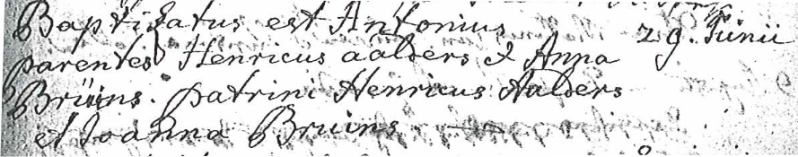 Baptizatus est Antonius 29. Junii
parentes Henricus aalders & Anna
Brüins. patrini Henricus Aalders
et Joanna Bruins